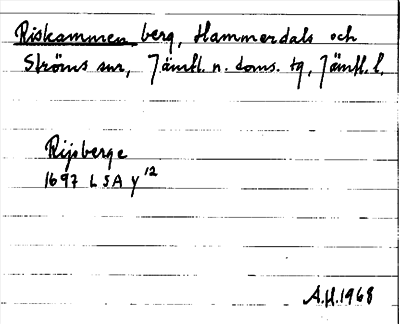 Riskammen berg, Hammerdals och
Ströms snr, Jämtl. n. doms. tg, Jämtl. l.
Rijsberge
1697 LSA Y12
A.H.1968